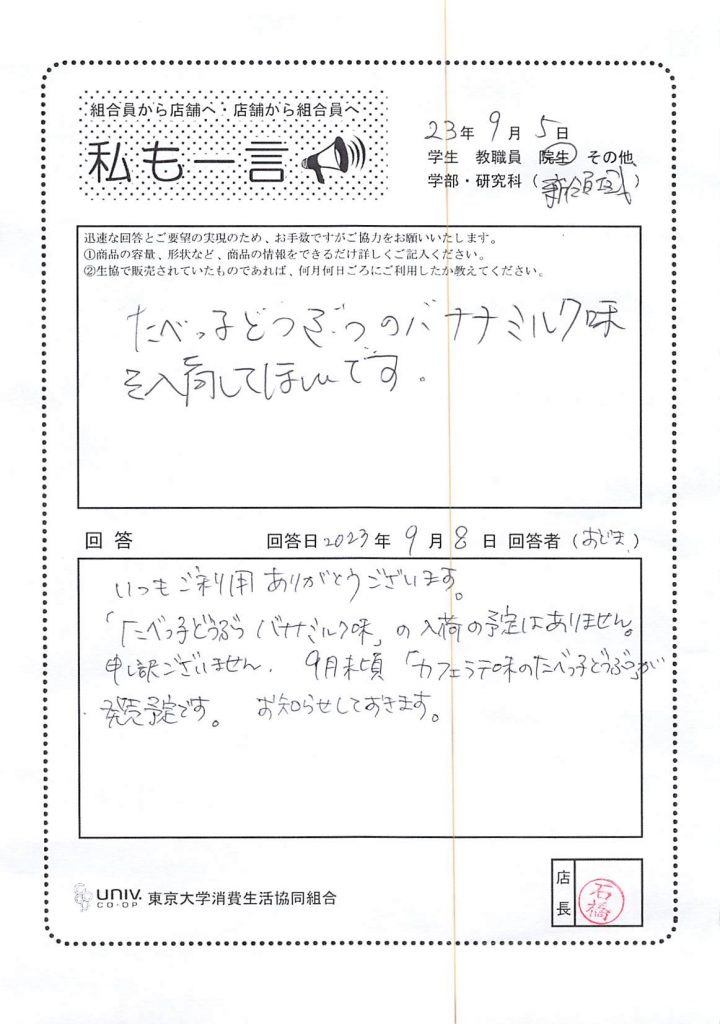 組合員から店舗へ・店舗から組合員へ
私も一言
23年 9月 5日
学生 教職員 院生 その他
学部・研究科（新領域）
迅速な回答とご要望の実現のため、お手数ですがご協力をお願いいたします。
①商品の容量、形状など、商品の情報をできるだけ詳しくご記入ください。
②生協で販売されていたものであれば、何月何日ごろにご利用したか教えてください。
たべっ子どうぶつのバナナミルク味
を入荷してほしいです。
回答 回答日2023年 9月 8日 回答者（おじま）
いつもご利用ありがとうございます。
「たべっ子どうぶつ バナナミルク味」の入荷の予定はありません。
申し訳ございません。 9月末頃「カフェラテ味のたべっ子どうぶつ」が
発売予定です。 お知らせしておきます。
UNIV. CO-OP 東京大学消費生活協同組合
店長 石橋